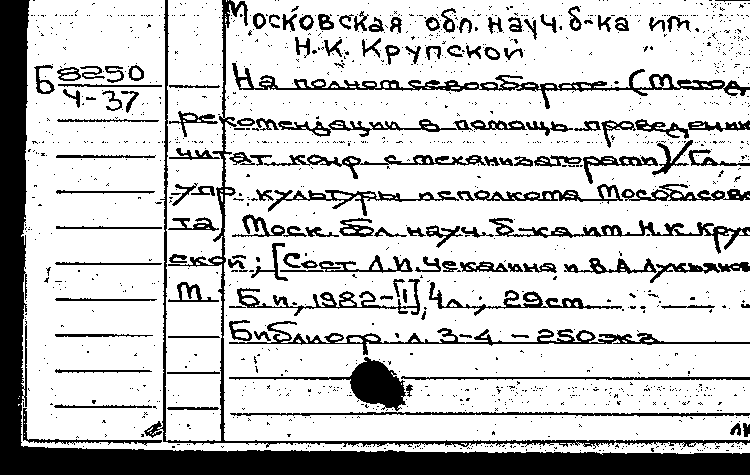 Московская обл. науч. б-ка им.
Н. К. Крупской
Б 8250
4-37
На полном севообороте: (Метод.
рекомендации в помощь проведению
читат. конф. с механизаторами) / Гл.
упр. культуры исполкома Мособлсове
та, Моск. обл. науч. б-ка им. Н. К. Круп
ской; [Сост. Л. И. Чекалина и В. А. Лукьянов
М.: Б. и., 1982-[1], 4 л.; 29 см.
Библиогр.: л. 3-4 - 250 экз.